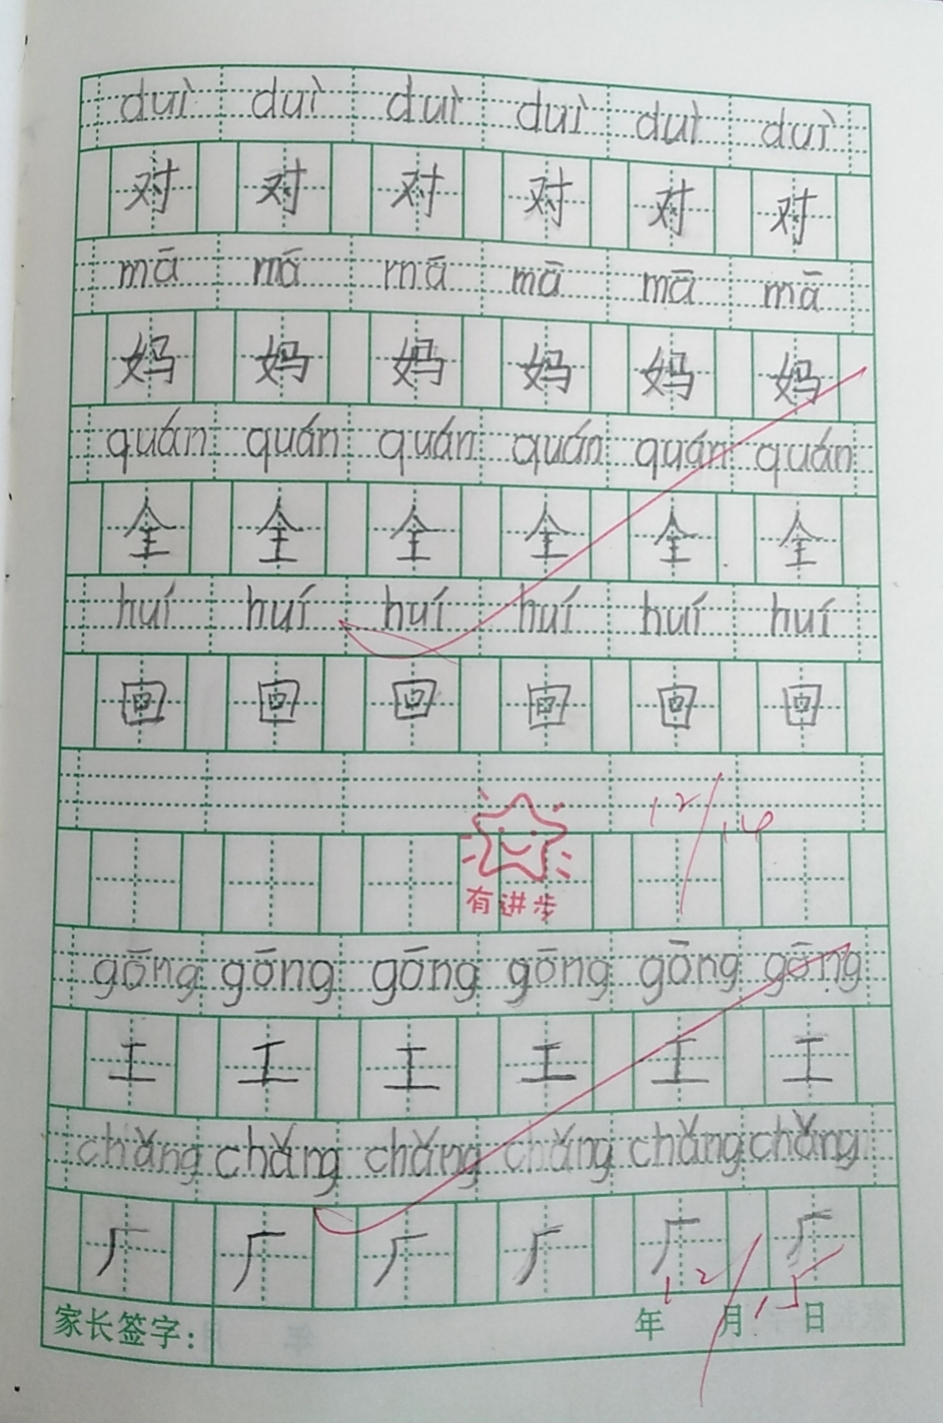 duì duì duì duì duì duì
对 对 对 对 对 对
mā mā mā mā mā mā
妈 妈 妈 妈 妈 妈
quán quán quán quán quán quán
全 全 全 全 全 全
huí huí huí huí huí huí
回 回 回 回 回 回
12/14
有进步
gōng gōng gōng gōng gōng gōng
工 工 工 工 工 工
chǎng chǎng chǎng chǎng chǎng chǎng
厂 厂 厂 厂 厂 厂
12/15
家长签字: 年 月 日